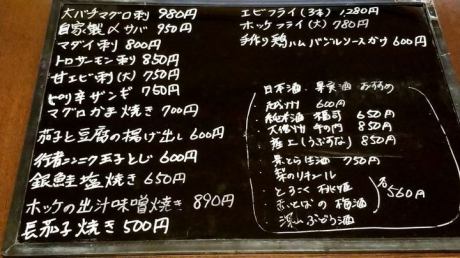 大バチマグロ刺 980円
自家製〆サバ 950円
マダイ刺 800円
トロサーモン刺 850円
甘エビ刺(大) 750円
ピリ辛ザンギ 750円
マグロかま焼き 700円
茄子と豆腐の揚げ出し 600円
行者ニンニク玉子とじ 600円
銀鮭塩焼き 650円
ホッケの出汁味噌焼き 890円
長茄子焼き 500円
エビフライ(3本) 1280円
ホッケフライ(大) 780円
手作り鶏ハムバジルソースかけ 600円
日本酒・果実酒 おすすめ
600円
純米酒 650円
850円
(うぶすな) 850円
750円
梨のリキュール
とろこく 桃姫
梅酒
深山ぶどう酒
各560円